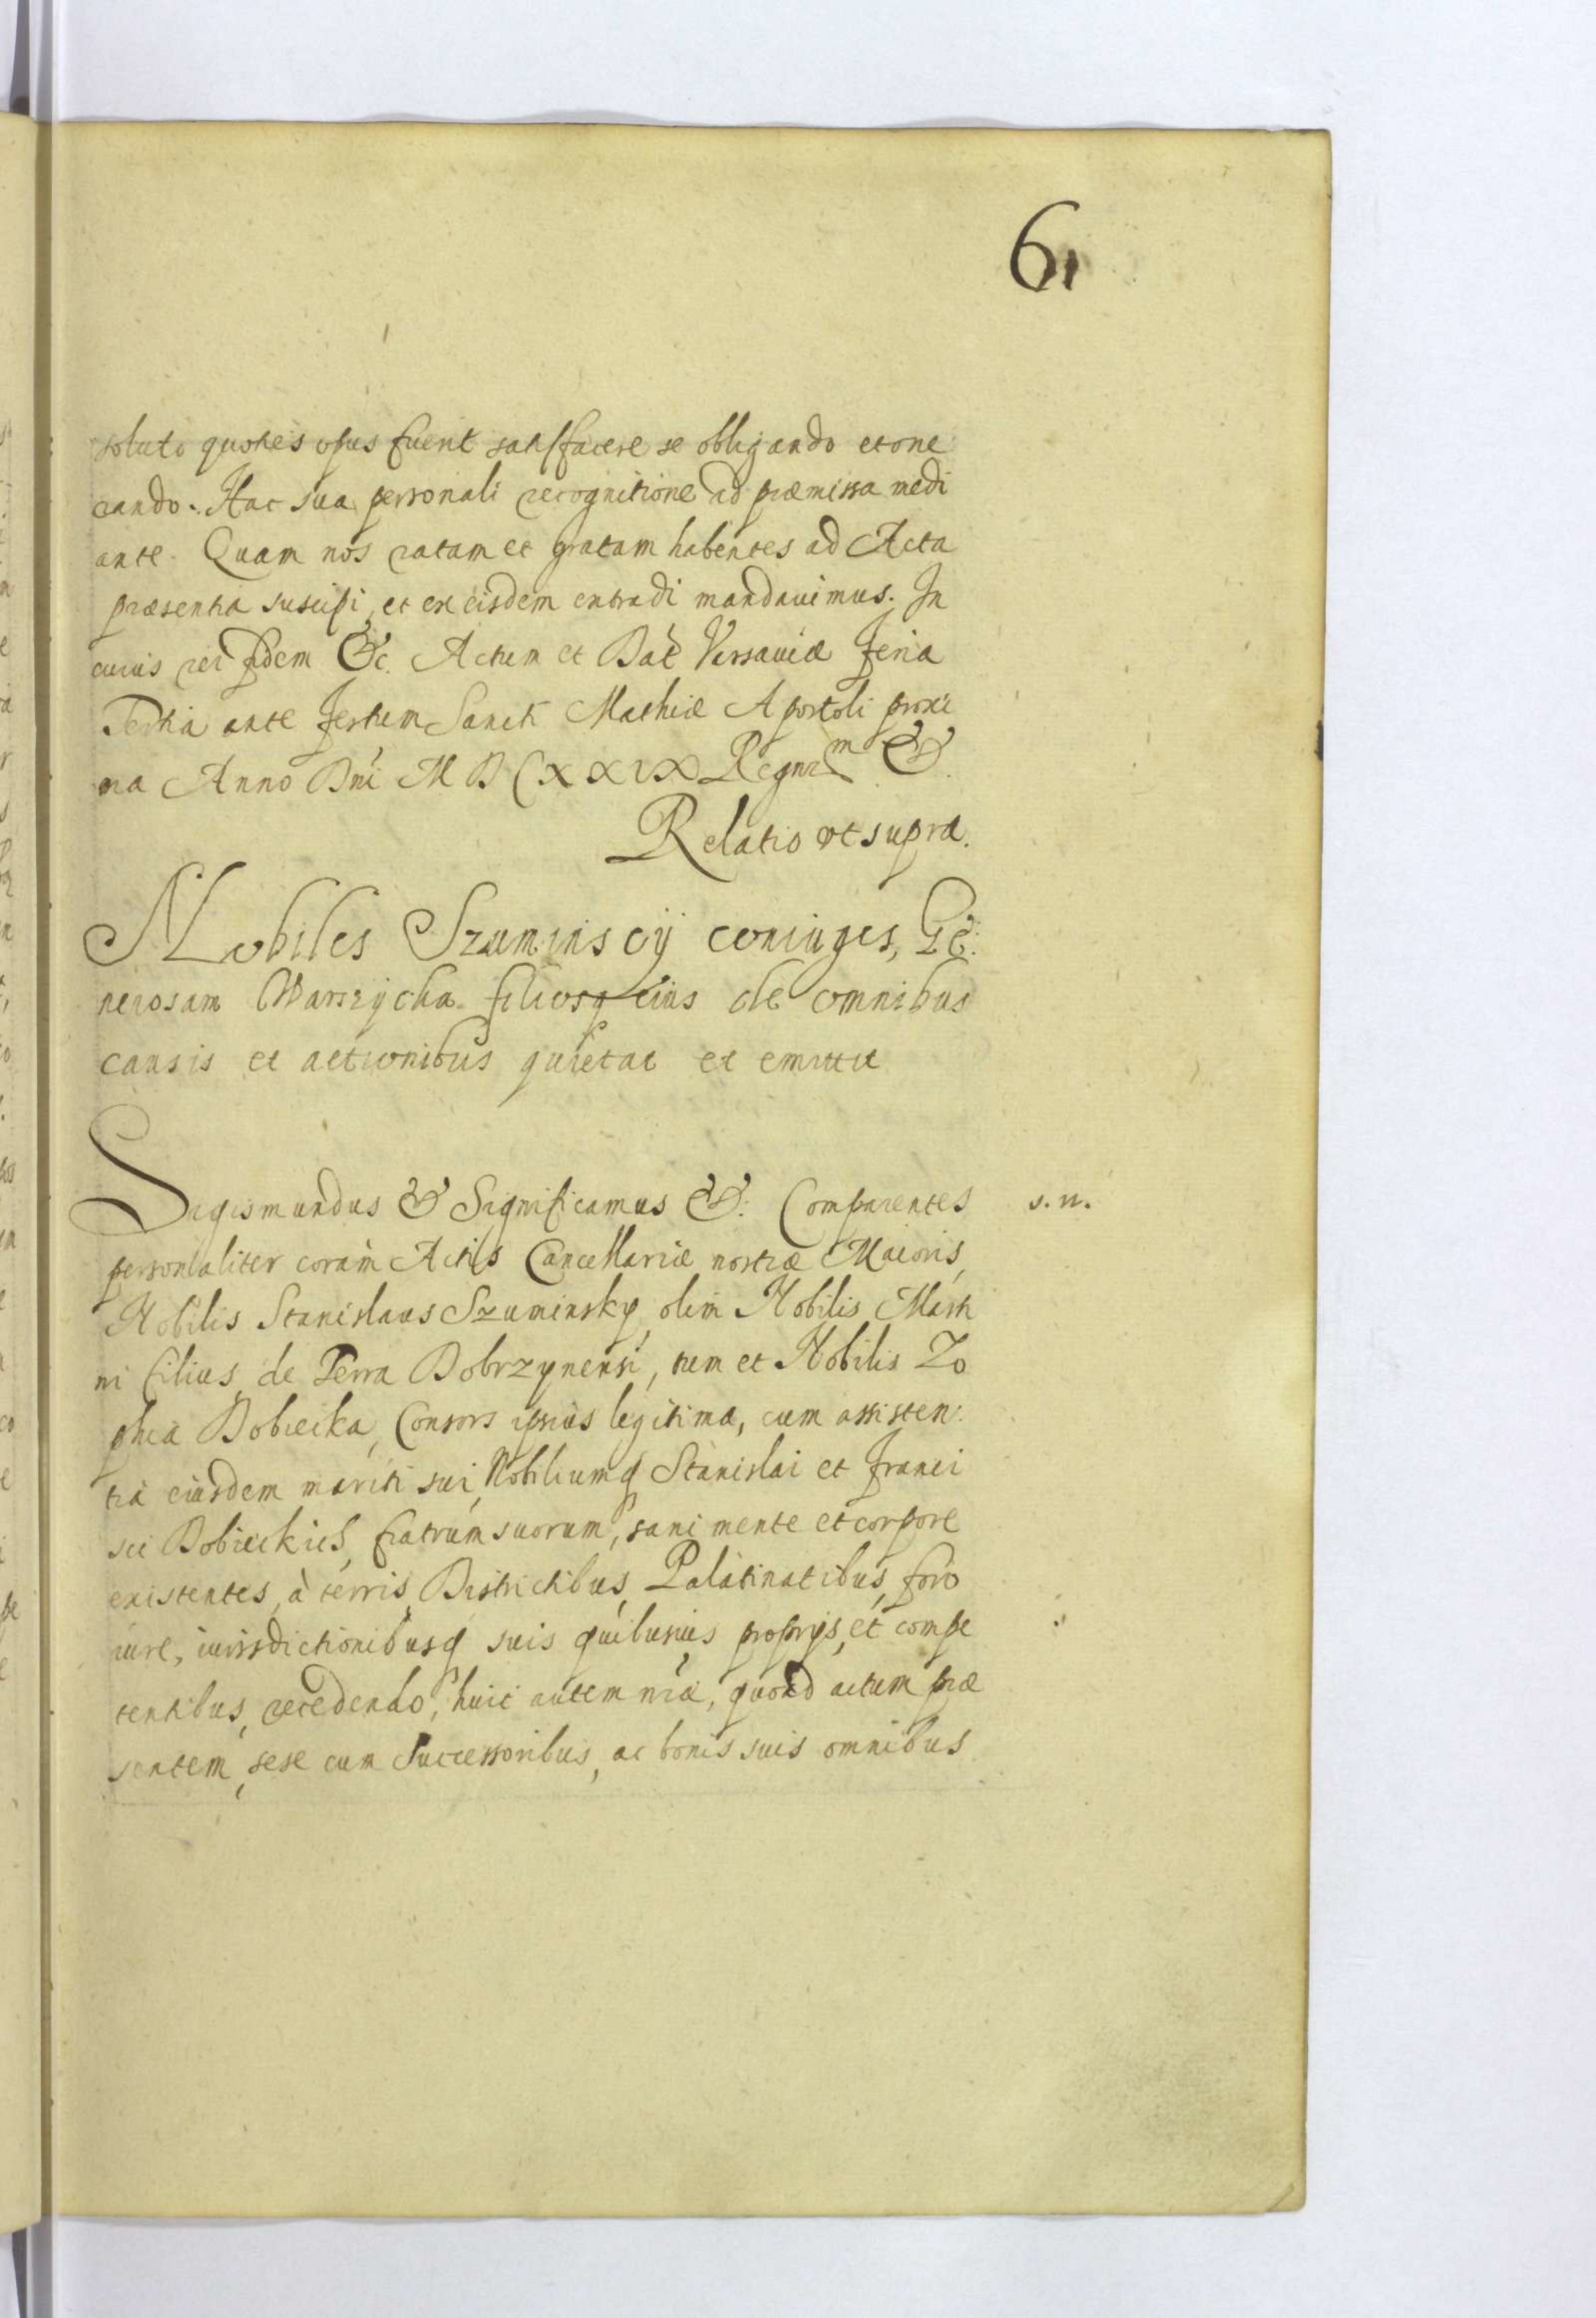 61
soluto quoties opus fuerit satisfacere se obligando et one
rando. Hac sua personali recognitione ad præmissa medi
ante. Quam nos ratam et gratam habentes ad Acta
præsentia suscipi, et ex eisdem extradi mandauimus. In
cuius rei fidem &c. Actum et Dat Varsauiæ Feria
Tertia ante Festum Sancti Mathiæ Apostoli proxi
ma Anno Dni M D C X X I X Regnrm &.
Relatio vt supra.
Nobiles Szuminscÿ coniuges, Ge:
nerosam Warszÿcka filiosq eius de omnibus
causis et actionibus quietat et emittit
Sigismundus & Significamus &: Comparentes
s. n.
personaliter coram Actis Cancellariæ nostræ Maioris,
Nobilis Stanislaus Szuminsky, olim Nobilis Marti
ni filius, de Terra Dobrzynensi, tum et Nobilis Zo
phia Dobiecka, Consors ipsius legitima, cum assisten:
tia eiusdem mariti sui, Nobiliumq Stanislai et Franci
sci Dobieckich, fratrum suorum, sani mente et corpore
existentes, à terris, Districtibus, Palatinatibus, foro
iure, iurisdictionibusq suis quibusuis proprijs, et compe
tentibus, recedendo, huic autem nræ, quoad actum præ
sentem, sese cum Successoribus, ac bonis suis omnibus